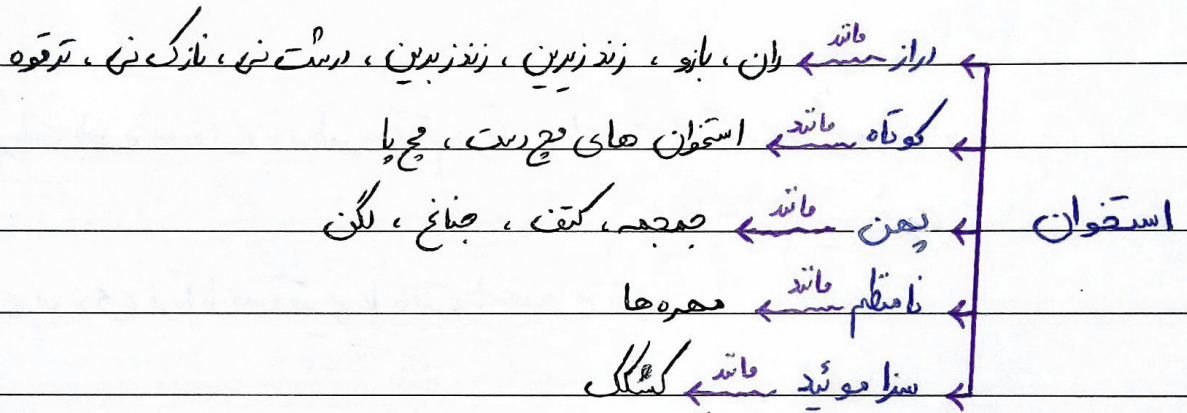 دراز مانند ران ، بازو ، زند زیرین ، زند زبرین ، درشت نی ، نازک نی ، ترقوه
کوتاه مانند استخوان های مچ دست ، مچ پا
استخوان پهن مانند جمجمه ، کتف ، جناغ ، لگن
نامنظم مانند مهره ها
سزاموئید مانند کشکک